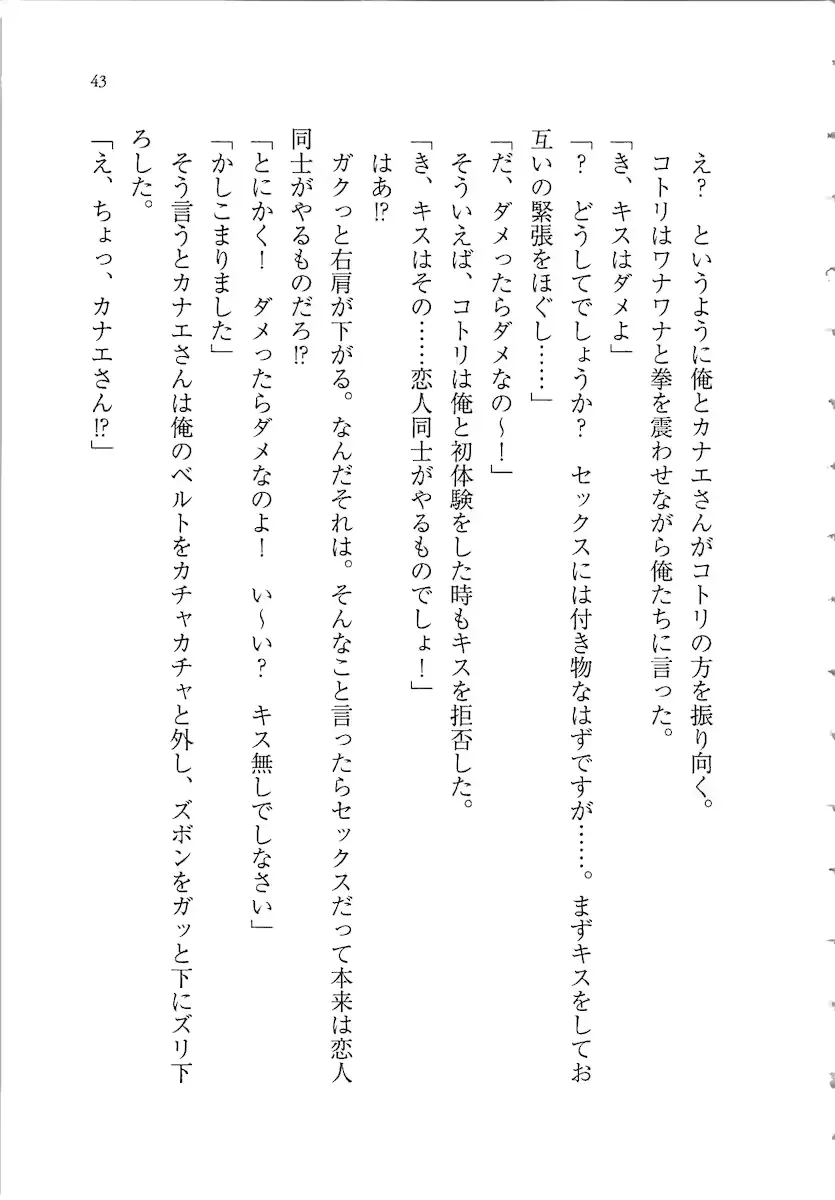 え？　というように俺とカナエさんがコトリの方を振り向く。
コトリはワナワナと拳を震わせながら俺たちに言った。
「き、キスはダメよ」
「？　どうしてでしょうか？　セックスには付き物なはずですが……。まずキスをしてお
互いの緊張をほぐし……」
「だ、ダメったらダメなの〜！」
そういえば、コトリは俺と初体験をした時もキスを拒否した。
「き、キスはその……恋人同士がやるものでしょ！」
はあ!?
ガクっと右肩が下がる。なんだそれは。そんなこと言ったらセックスだって本来は恋人
同士がやるものだろ!?
「とにかく！　ダメったらダメなのよ！　い〜い？　キス無しでしなさい」
「かしこまりました」
そう言うとカナエさんは俺のベルトをカチャカチャと外し、ズボンをガッと下にズリ下
ろした。
「え、ちょっ、カナエさん!?」
43